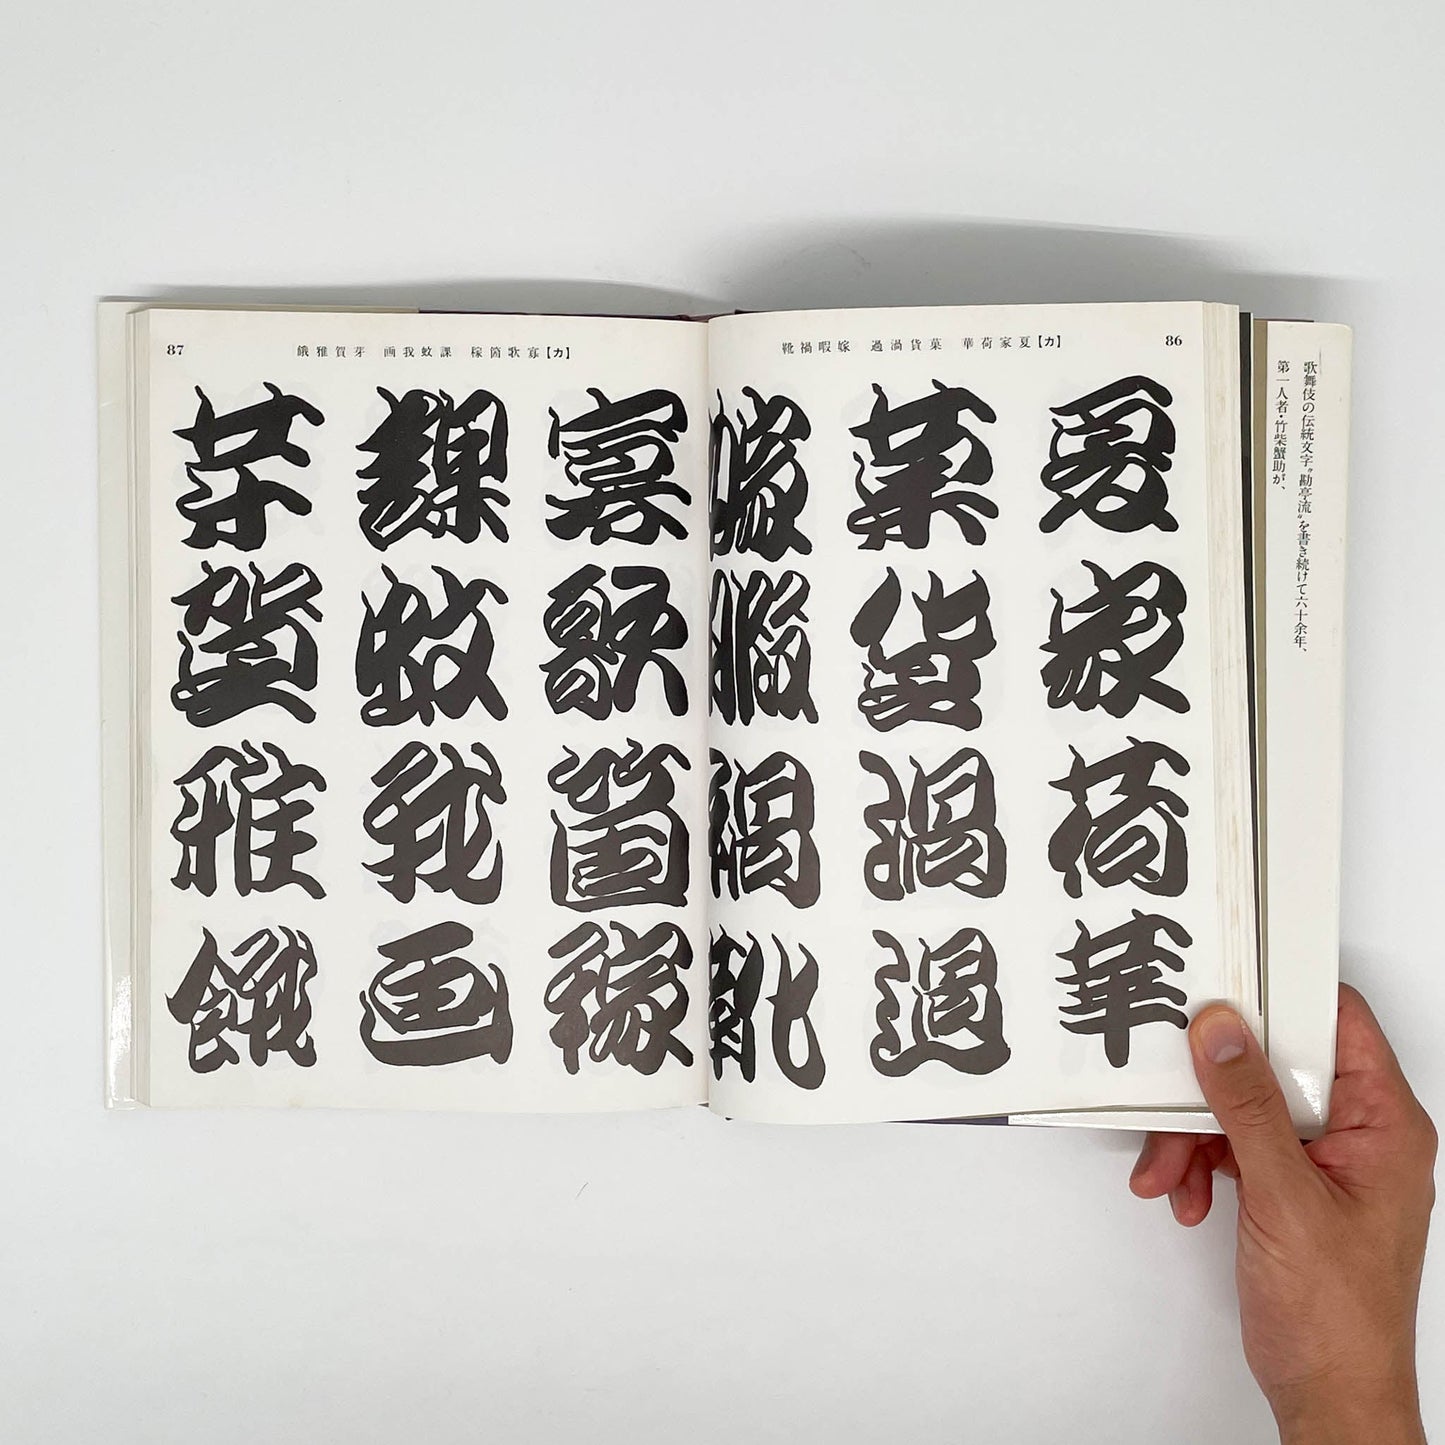 歌舞伎の伝統文字〝勘亭流〟を書き続けて六十余年、
第一人者・竹柴蟹助が、
86
【カ】夏家荷華 菓貨渦過 嫁暇禍靴
夏家荷華
菓貨渦過
嫁暇禍靴
【カ】寡歌箇稼 課蚊我画 芽賀雅餓
87
寡歌箇稼
課蚊我画
芽賀雅餓